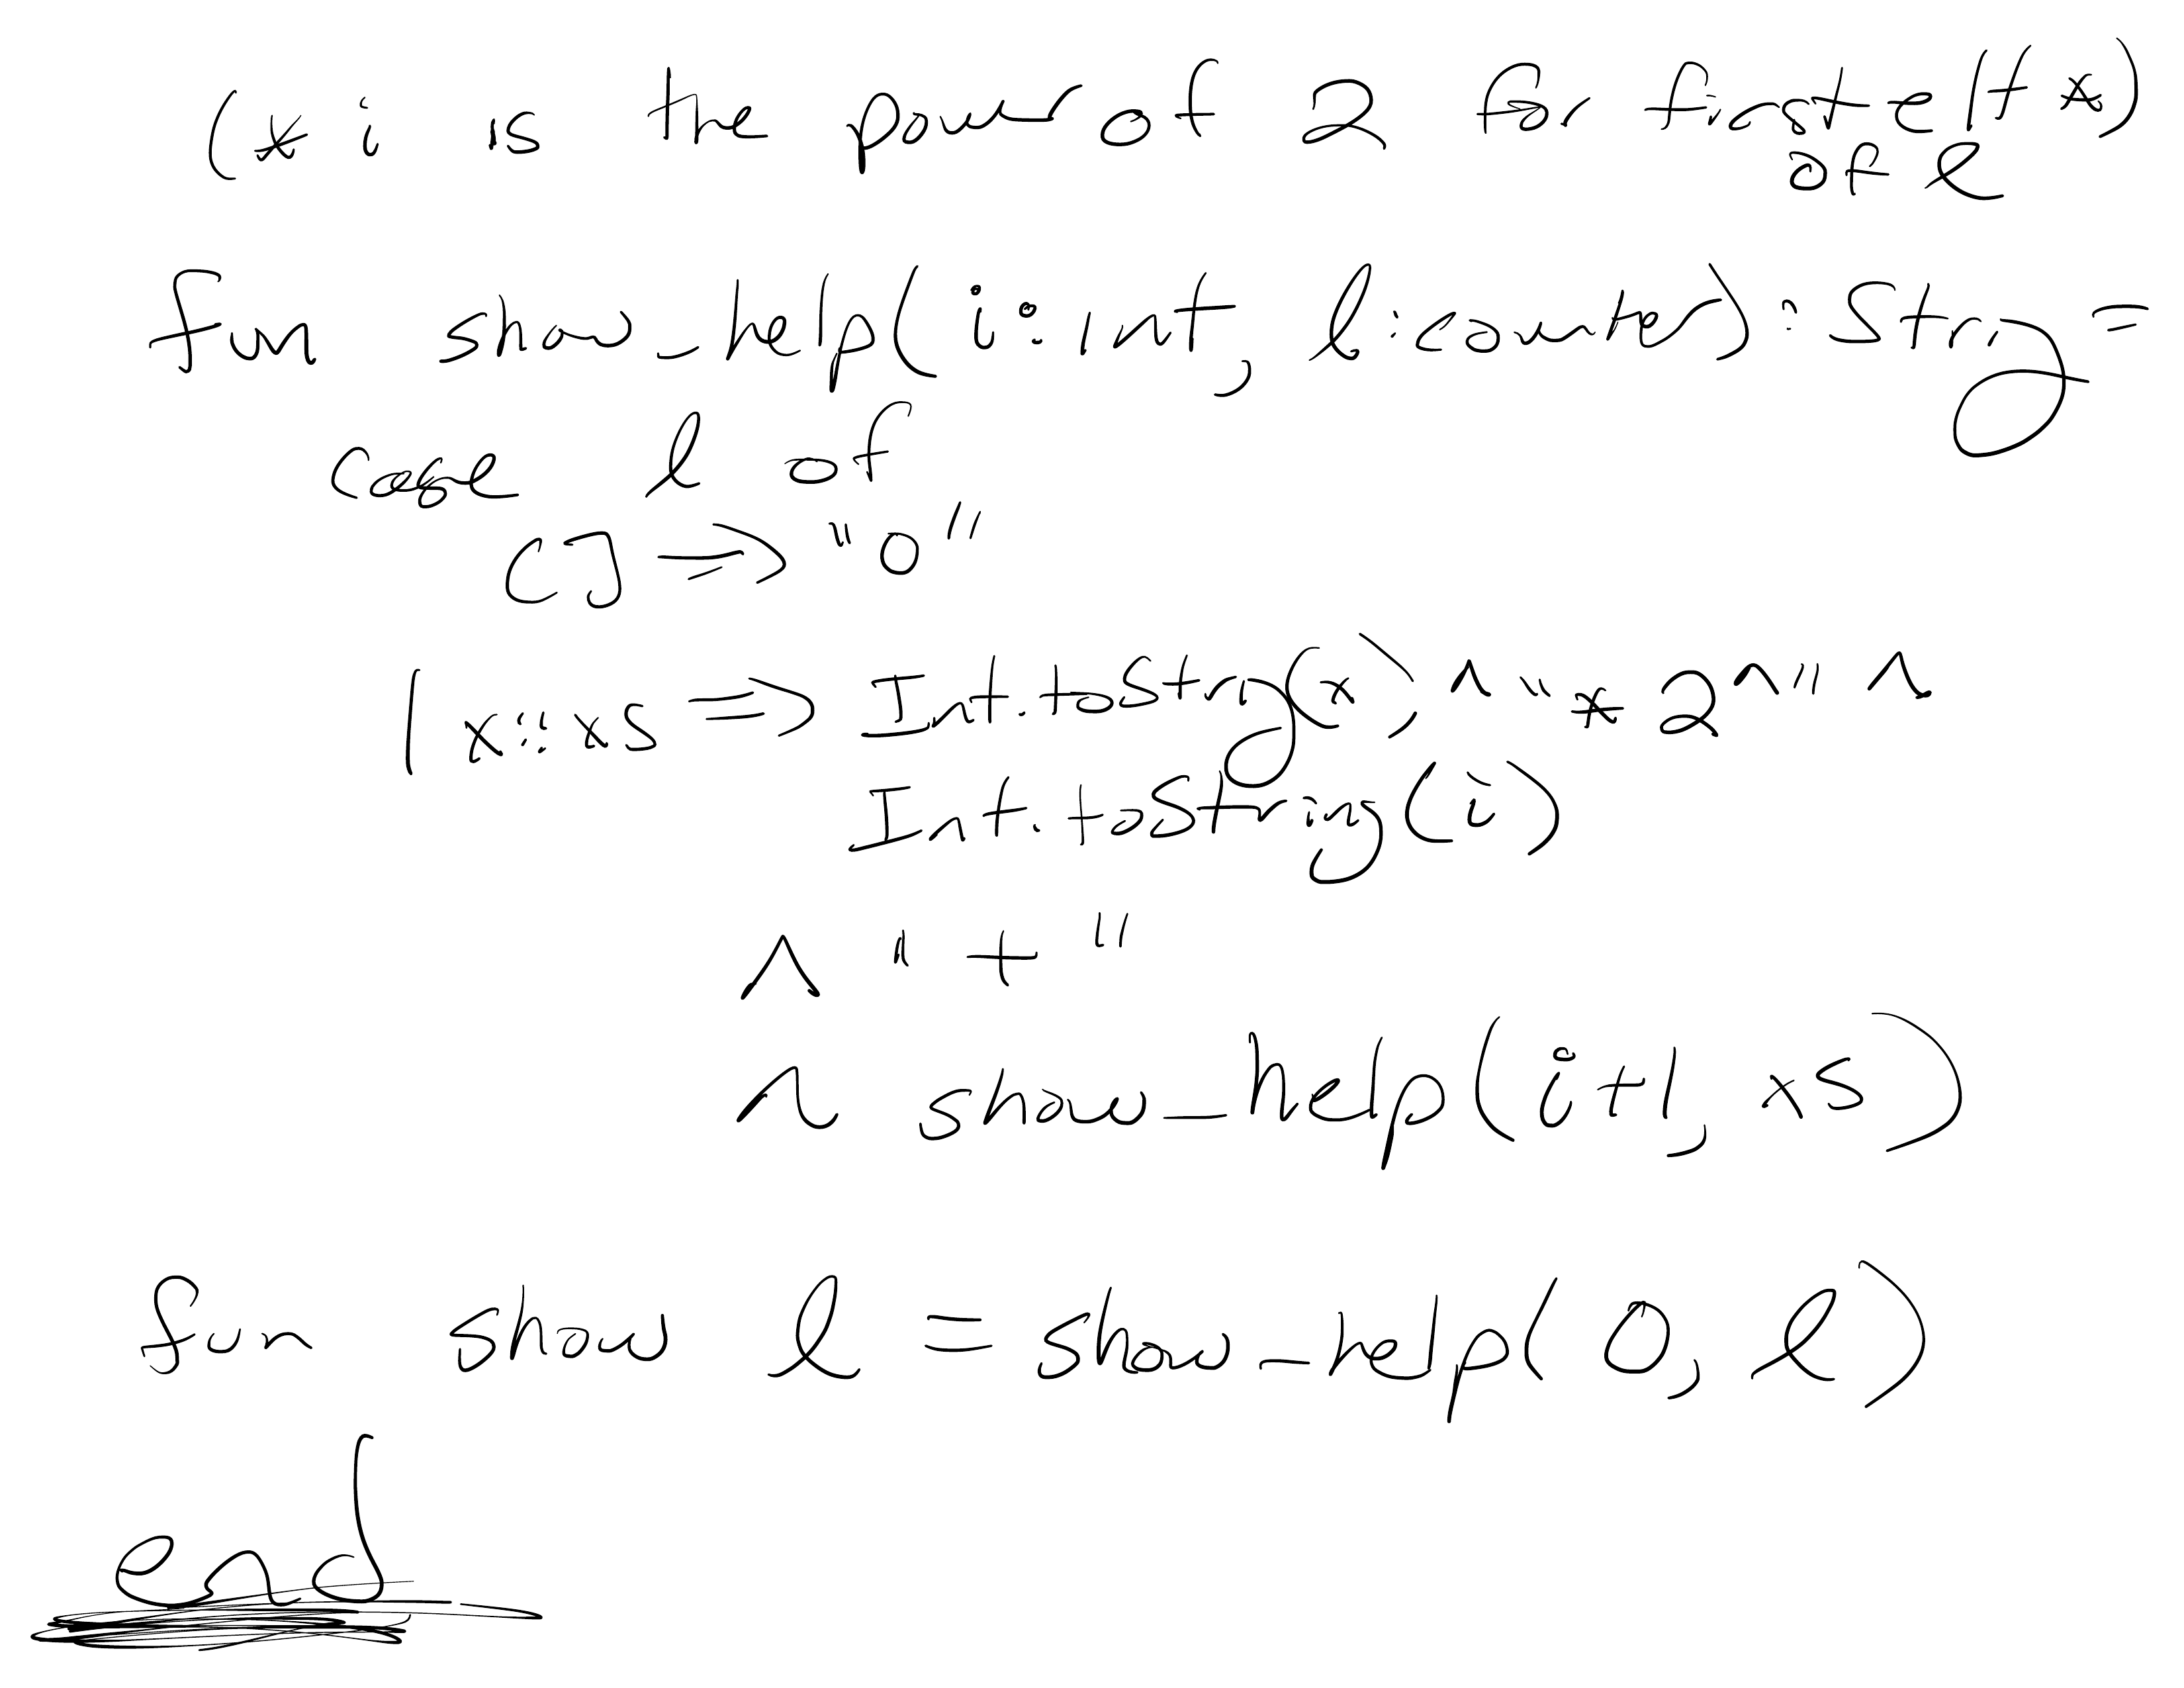 (* i is the power of 2 for first elt *)
of l
fun show_help(i: int, l: counter): string =
case l of
[] => "0"
| x::xs => Int.toString(x) ^ "* 2^" ^
Int.toString(i)
^ "+"
^ show_help(i+1, xs)
fun show l = show_help(0, l)
end